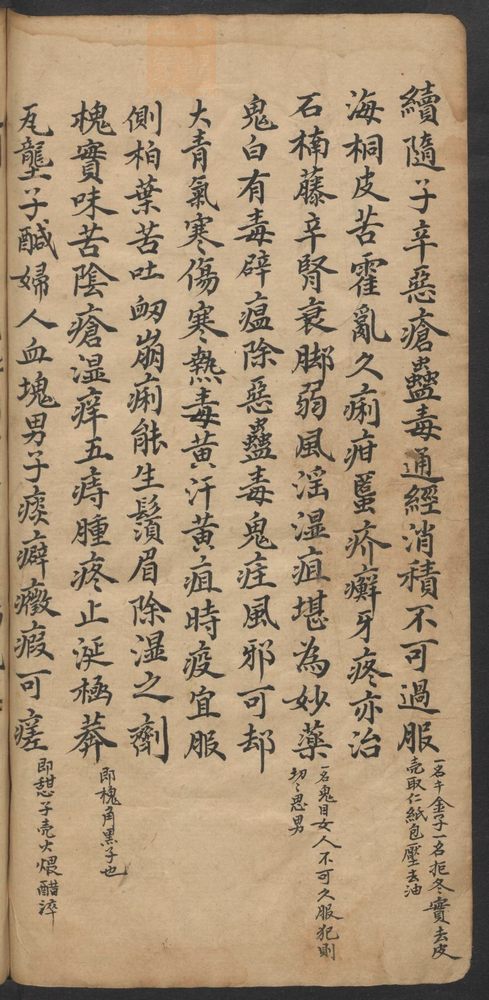 續隨子辛惡瘡蠱毒通經消積不可過服
一名千金子一名拒冬實去皮
壳取仁紙包壓去油
海桐皮苦霍亂久痢疳䘌疥癬牙疼亦治
石楠藤辛腎衰脚弱風淫湿疽堪為妙藥
一名鬼目女人不可久服犯則
切〻思男
鬼臼有毒辟瘟除惡蠱毒鬼疰風邪可却
大青氣寒傷寒熱毒黃汗黃疸時疫宜服
側柏葉苦吐衂崩痢能生鬚眉除湿之劑
槐實味苦陰瘡湿痒五痔腫疼止涎極莽
即槐角黑子也
瓦壟子鹹婦人血塊男子痰癖癥瘕可瘥
即甜子壳火煨醋淬